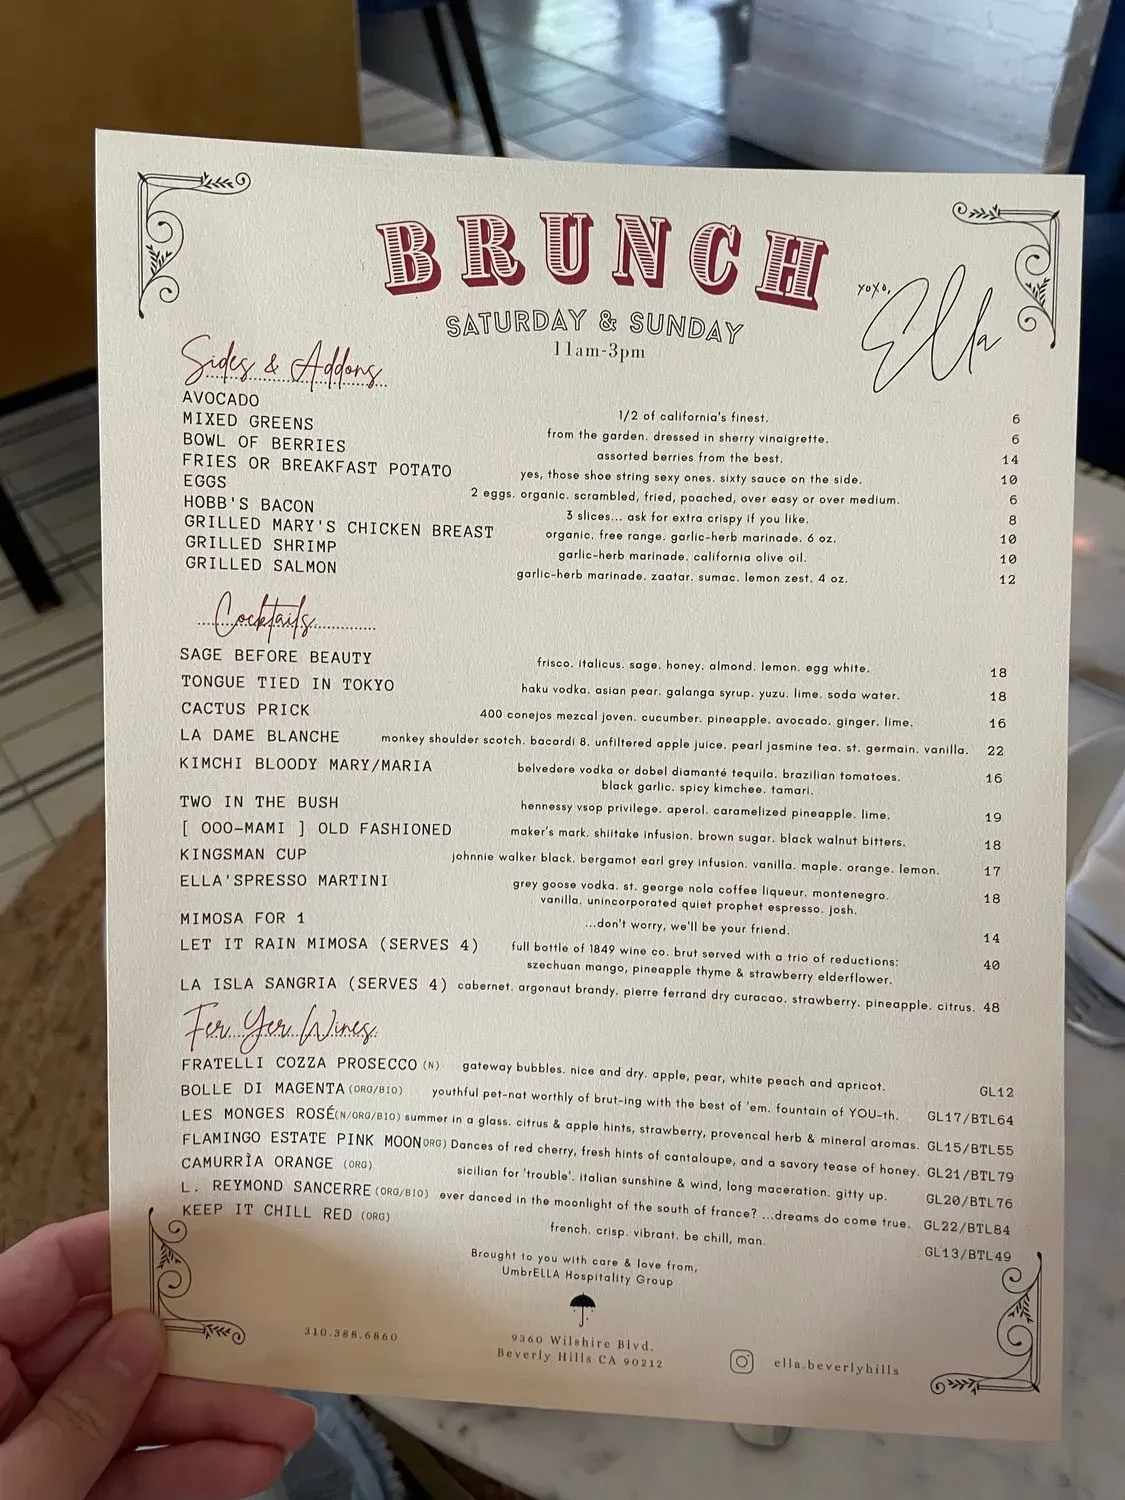 BRUNCH
SATURDAY & SUNDAY
11am-3pm
xoxo,
Ella
Sides & Addons
AVOCADO 1/2 of california's finest. 6
MIXED GREENS from the garden. dressed in sherry vinaigrette. 6
BOWL OF BERRIES assorted berries from the best. 14
FRIES OR BREAKFAST POTATO yes, those shoe string sexy ones. sixty sauce on the side. 10
EGGS 2 eggs. organic. scrambled, fried, poached, over easy or over medium. 6
HOBB'S BACON 3 slices... ask for extra crispy if you like. 8
GRILLED MARY'S CHICKEN BREAST organic. free range. garlic-herb marinade. 6 oz. 10
GRILLED SHRIMP garlic-herb marinade. california olive oil. 10
GRILLED SALMON garlic-herb marinade. zaatar. sumac. lemon zest. 4 oz. 12
Cocktails
SAGE BEFORE BEAUTY frisco. italicus. sage. honey. almond. lemon. egg white. 18
TONGUE TIED IN TOKYO haku vodka. asian pear. galanga syrup. yuzu. lime. soda water. 18
CACTUS PRICK 400 conejos mezcal joven. cucumber. pineapple. avocado. ginger. lime. 16
LA DAME BLANCHE monkey shoulder scotch. bacardi 8. unfiltered apple juice. pearl jasmine tea. st. germain. vanilla. 22
KIMCHI BLOODY MARY/MARIA belvedere vodka or dobel diamanté tequila. brazilian tomatoes. 16
black garlic. spicy kimchee. tamari.
TWO IN THE BUSH hennessy vsop privilege. aperol. caramelized pineapple. lime. 19
[ OOO-MAMI ] OLD FASHIONED maker's mark. shiitake infusion. brown sugar. black walnut bitters. 18
KINGSMAN CUP johnnie walker black. bergamot earl grey infusion. vanilla. maple. orange. lemon. 17
ELLA'SPRESSO MARTINI grey goose vodka. st. george nola coffee liqueur. montenegro. 18
vanilla. unincorporated quiet prophet espresso. josh.
MIMOSA FOR 1 ...don't worry, we'll be your friend. 14
LET IT RAIN MIMOSA (SERVES 4) full bottle of 1849 wine co. brut served with a trio of reductions: 40
szechuan mango, pineapple thyme & strawberry elderflower.
LA ISLA SANGRIA (SERVES 4) cabernet. argonaut brandy. pierre ferrand dry curacao. strawberry. pineapple. citrus. 48
Fer Yer Wines
FRATELLI COZZA PROSECCO (N) gateway bubbles. nice and dry. apple, pear, white peach and apricot. GL12
BOLLE DI MAGENTA (ORG/BIO) youthful pet-nat worthly of brut-ing with the best of 'em. fountain of YOU-th. GL17/BTL64
LES MONGES ROSÉ(N/ORG/BIO) summer in a glass. citrus & apple hints, strawberry, provencal herb & mineral aromas. GL15/BTL55
FLAMINGO ESTATE PINK MOONORG) Dances of red cherry, fresh hints of cantaloupe, and a savory tease of honey. GL21/BTL79
CAMURRÌA ORANGE (ORG) sicilian for 'trouble'. italian sunshine & wind, long maceration. gitty up. GL20/BTL76
L. REYMOND SANCERRE (ORG/BIO) ever danced in the moonlight of the south of france? ...dreams do come true. GL22/BTL84
KEEP IT CHILL RED (ORG) french. crisp. vibrant. be chill, man. GL13/BTL49
Brought to you with care & love from,
UmbrELLA Hospitality Group
310.388.6860
9360 Wilshire Blvd.
Beverly Hills CA 90212
ella.beverlyhills